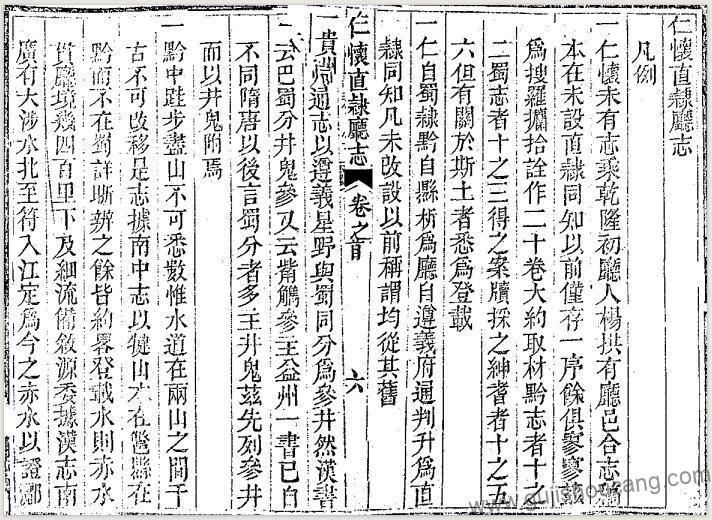 仁懷直隸廳志
凡例
一仁懷未有志乘乾隆初廳人楊拱有廳邑合志
本在未設直隸同知以前僅存一序餘俱寥寥
爲搜羅攟拾詮作二十卷大約取材黔志者十之
二蜀志者十之三得之案牘採之紳耆者十之五
六但有關於斯土者悉爲登載
一仁自蜀隸黔自縣析爲廳自遵義府通判升爲直
隸同知凡未改設以前稱謂均從其舊
仁懷直隸廳志 卷之首 六
一貴州通志以遵義星野與蜀同分爲參井然漢書
云巴蜀分井鬼參又云觜觿參主益州一書已自
不同隋唐以後言蜀分者多主井鬼茲先列參井
而以井鬼附焉
一黔中跬步盡山不可悉數惟水道在兩山之間千
古不可改移是志據南中志以犍山本在鄨縣在
黔而不在蜀詳晰辨之餘皆約畧登載水則赤水
貫廳境幾四百里下及細流備敘源委據漢志南
廣有大涉水北至符入江定爲今之赤水以證酈
www.gujishoucang.com